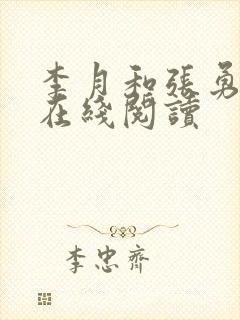 李月和張勇
在綫閱讀
李忠齊